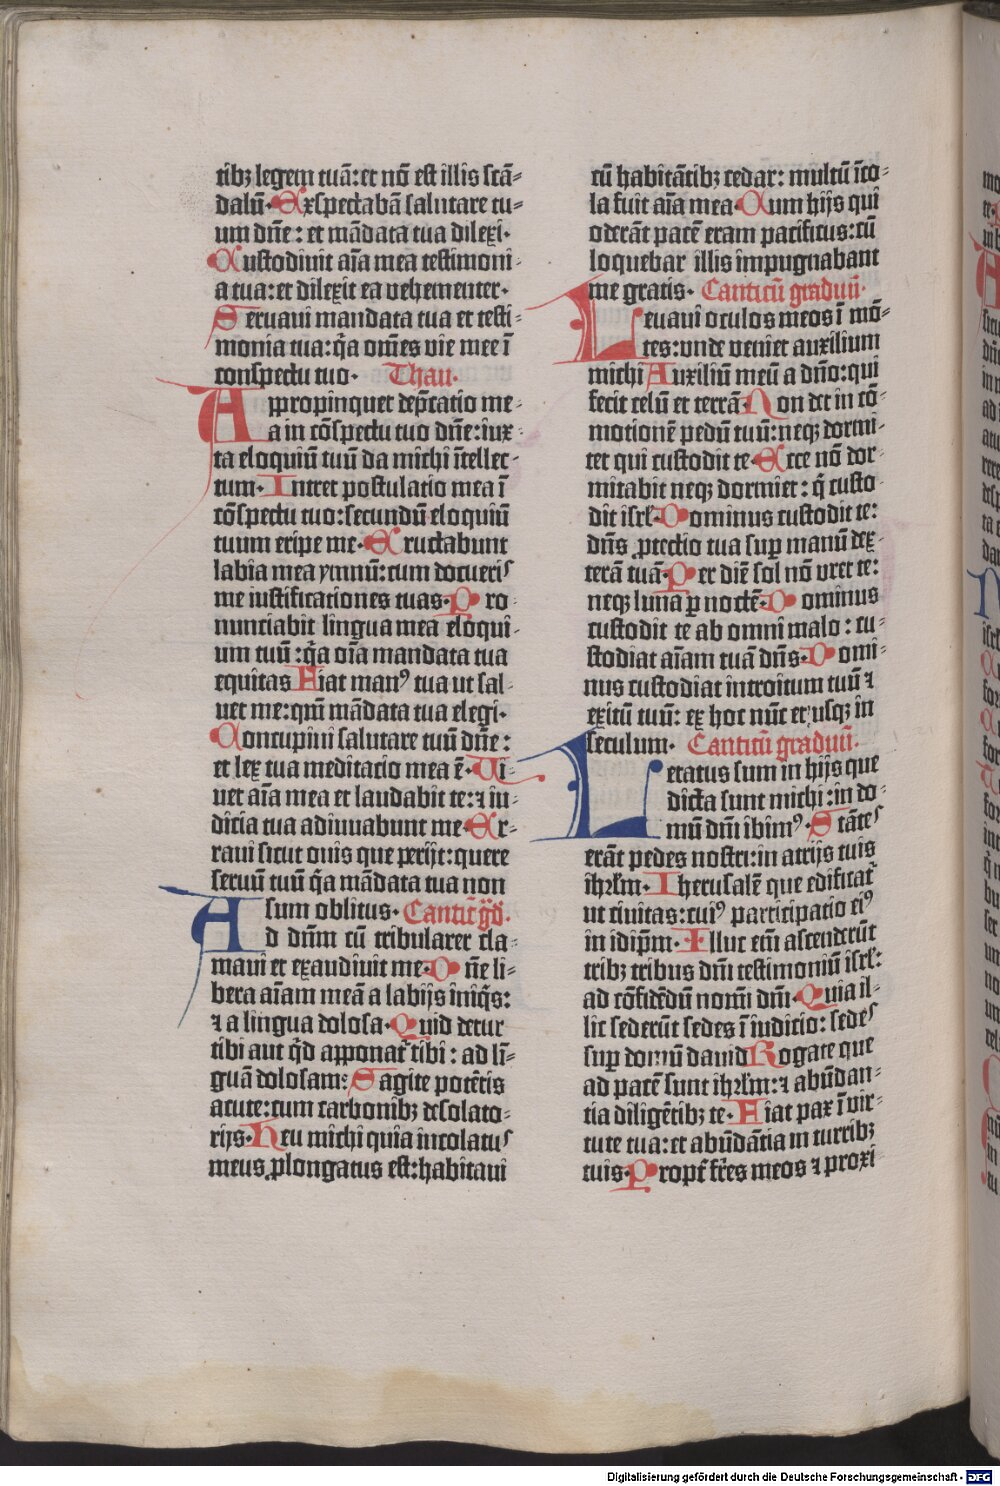 tibꝫ legem tuā: et nō est illis scā-
dalū. Exspectabā salutare tu-
um dn̄e: et mādata tua dilexi.
Custodiuit aīa meā testimoni-
a tua: et dilexit ea vehementer.
Seruaui mandata tua et testi-
monia tua: q̄a om̄es vie mee ī
conspectu tuo. Thau.
Appropinquet dep̄catio me-
a in cōspectu tuo dn̄e: iux-
ta eloquiū tuū da michi ītellec-
tum. Intret postulatio mea ī
cōspectu tuo: secundū eloquiū
tuum eripe me. Eructabunt
labia mea ymnū: cum docueris
me iustificationes tuas. Pro-
nunciabit lingua mea eloqui-
um tuū: q̄a oīa mandata tua
equitas Fiat manꝰ tua ut sal-
uet me: qm̄ mādata tua elegi.
Concupiui salutare tuū dn̄e:
et lex tua meditacio mea ē. Vi-
uet aīa mea et laudabit te: ⁊ iu-
dicia tua adiuuabunt me. Er-
raui sicut ouis que perijt: quere
seruū tuū q̄a mādata tua non
sum oblitus. Canticū g̈dū.
Ad dn̄m cū tribularer cla-
maui et exaudiuit me. Dn̄e li-
bera aīam meā a labijs īniq̄s:
⁊ a lingua dolosa. Quid detur
tibi aut q̄d apponat᷑ tibi: ad lī-
guā dolosam: Sagite potētis
acute: cum carbonibꝫ desolato-
rijs. Heu michi quia incolatus
meus ꝓlongatus est: habitaui
cū habitātibꝫ cedar: multū īco-
la fuit aīa mea. Cum hijs qui
oderāt pacē eram pacificus: cū
loquebar illis impugnabant
me gratis. Canticū graduū.
Leuaui oculos meos ī mō-
tes: vnde veniet auxilium
michi Auxiliū meū a dn̄o: qui
fecit celū et terrā. Non det in cō-
motionē pedū tuū: neqꝫ dormi-
tet qui custodit te. Ecce nō dor-
mitabit neqꝫ dormiet: q̄ custo-
dit isrl̄. Dominus custodit te:
dn̄s ꝓtectio tua suꝑ manū dex-
terā tuā. Per diē sol nō vret te:
neqꝫ luna ꝑ noctē. Dominus
custodit te ab omni malo: cu-
stodiat aīam tuā dn̄s. Domi-
nus custodiat introitum tuū ⁊
exitū tuū: ex hoc nūc et usqꝫ in
seculum. Canticū graduū.
Letatus sum in hijs que
dicta sunt michi: in do-
mū dn̄i ibimꝰ. Stātes
erāt pedes nostri: in atrijs tuis
ihrl̄m. Iherusalē que edificat᷑
ut ciuitas: cuiꝰ participatio eiꝰ
in idip̄m. Illuc em̄ ascenderūt
tribꝫ tribus dn̄i testimoniū isrl̄:
ad cōfidēdū nom̄i dn̄i. Quia il-
lic sederūt sedes ī iudicio: sedes
suꝑ domū dauid Rogate que
ad pacē sunt ihrl̄m: ⁊ abūdan-
tia diligētibꝫ te. Fiat pax ī vir-
tute tua: et abūdātia in turribꝫ
tuis. Propt᷑ fr̄es meos ⁊ proxi-
Digitalisierung gefördert durch die Deutsche Forschungsgemeinschaft - DFG